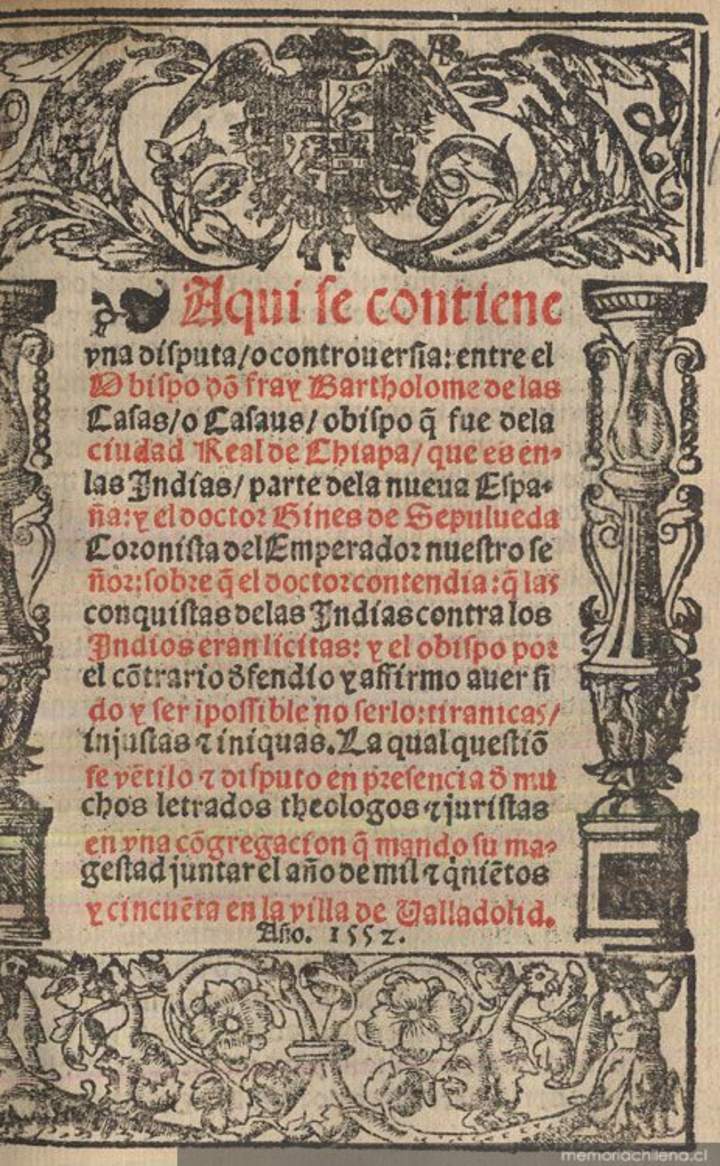 Aqui se contiene
vna disputa/o controuersia: entre el
Obispo dõ fray Bartholome de las
Casas/o Casaus/obispo q̃ fue dela
ciudad Real de Chiapa/que es en-
las Indias/parte dela nueua Espa-
ña: y el doctor Gines de Sepulueda
Coronista del Emperador nuestro se
ñor: sobre q̃ el doctor contendia: q̃ las
conquistas delas Indias contra los
Indios eran licitas: y el obispo por
el cõtrario d̃fendio y affirmo auer si
do y ser ĩpossible no serlo: tiranicas/
injustas ⁊ iniquas. La qual questiõ
se vẽtilo ⁊ disputo en presencia d̃ mu
chos letrados theologos ⁊ juristas
en vna cõgregacion q̃ mando su ma-
gestad juntar el año de mil ⁊ q̃niẽtos
y cincuẽta en la villa de Ualladolid.
Año. 1552.
memoriachilena.cl